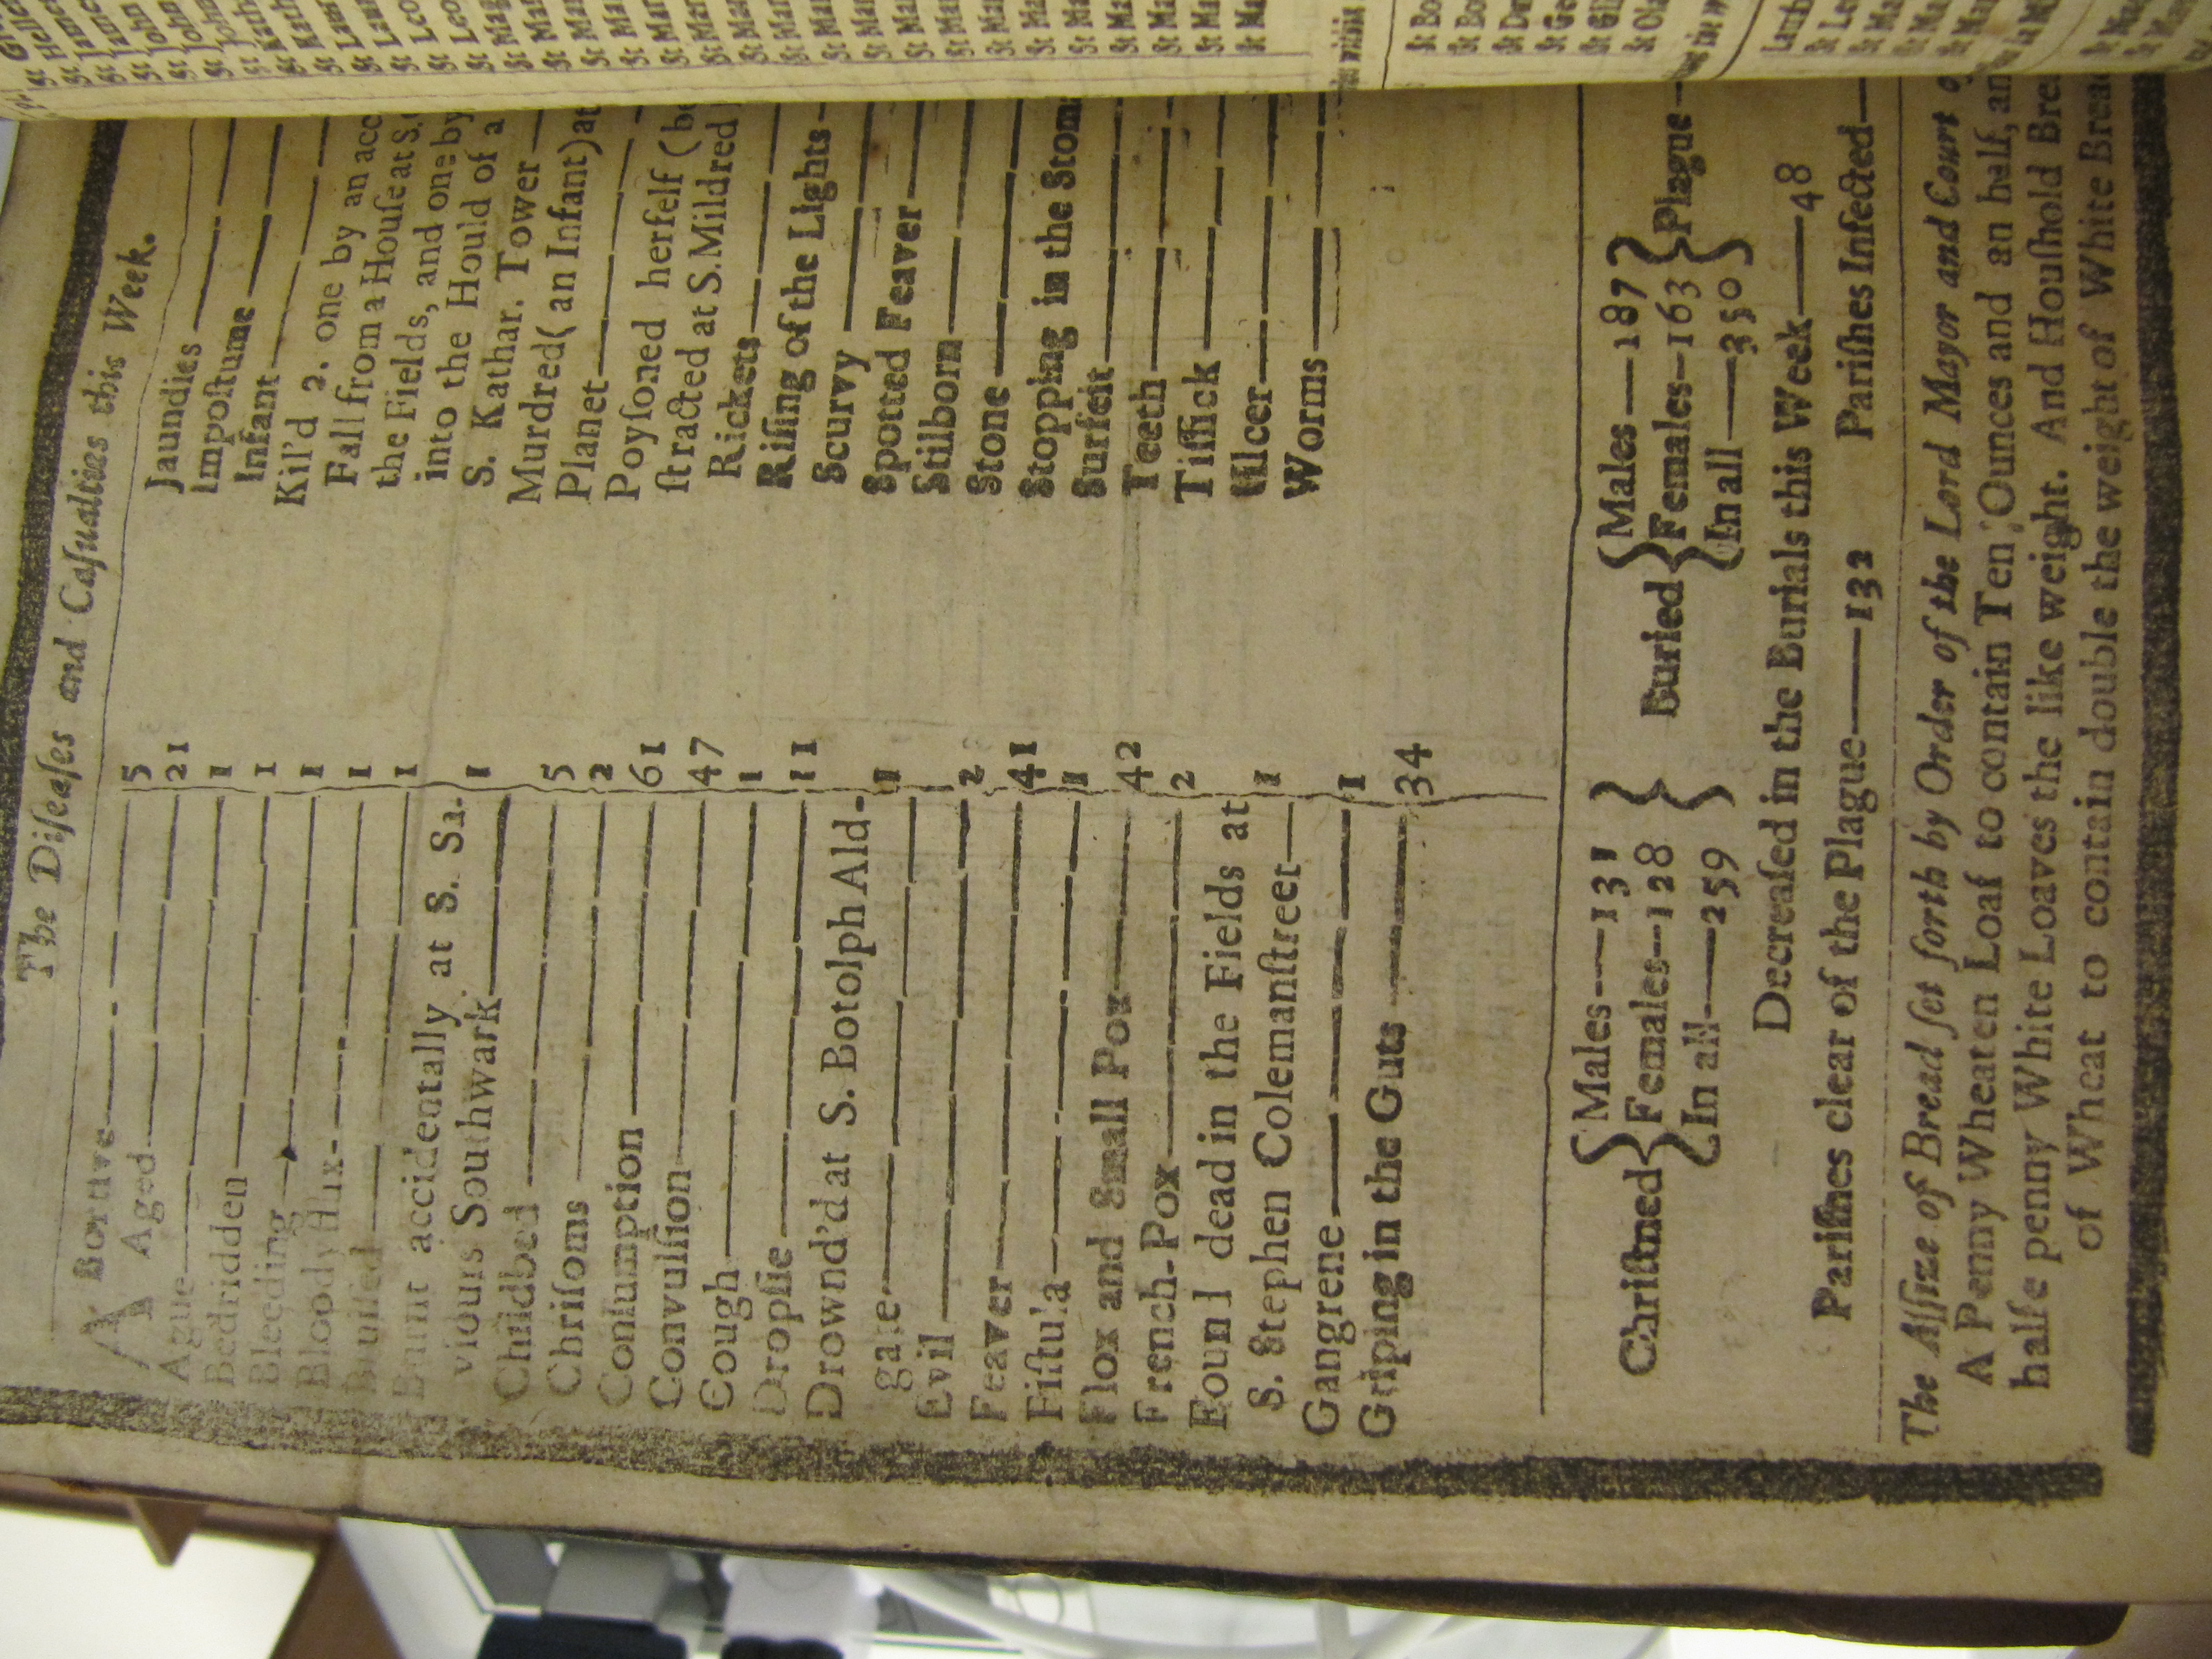 The Diſeaſes and Caſualties this Week.
ABortive 5
Aged 21
Ague 1
Bedridden 1
Bleeding 1
Bloody flux 1
Bruiſed 1
Burnt accidentally at S. Sa-
viours Southwark 1
Childbed 5
Chriſoms 2
Conſumption 61
Convulſion 47
Cough 1
Dropſie 11
Drown'd at S. Botolph Ald-
gate 1
Evil 2
Feaver 41
Fiſtula 1
Flox and Small Pox 42
French-Pox 2
Found dead in the Fields at
S. Stephen Colemanſtreet 1
Gangrene 1
Griping in the Guts 34
Jaundies
Impoſtume
Infant
Kil'd 2. one by an acc
Fall from a Houſe at S.
the Fields, and one by
into the Hould of a
S. Kathar. Tower
Murdred (an Infant) at
Planet
Poyſoned herſelf (be
ſtracted at S. Mildred
Rickets
Riſing of the Lights
Scurvy
Spotted Feaver
Stilborn
Stone
Stopping in the Stom
Surfeit
Teeth
Tiſſick
Ulcer
Worms
Chriſtned { Males—131
Females—128
In all—259 }
Buried { Males—187
Females—163
In all—350 } Plague—
Decreaſed in the Burials this Week—48
Pariſhes clear of the Plague—132 Pariſhes Infected—
The Aſſize of Bread ſet forth by Order of the Lord Mayor and Court o
A Penny Wheaten Loaf to contain Ten Ounces and an half, an
halfe penny White Loaves the like weight. And Houſhold Brea
of Wheat to contain double the weight of White Brea